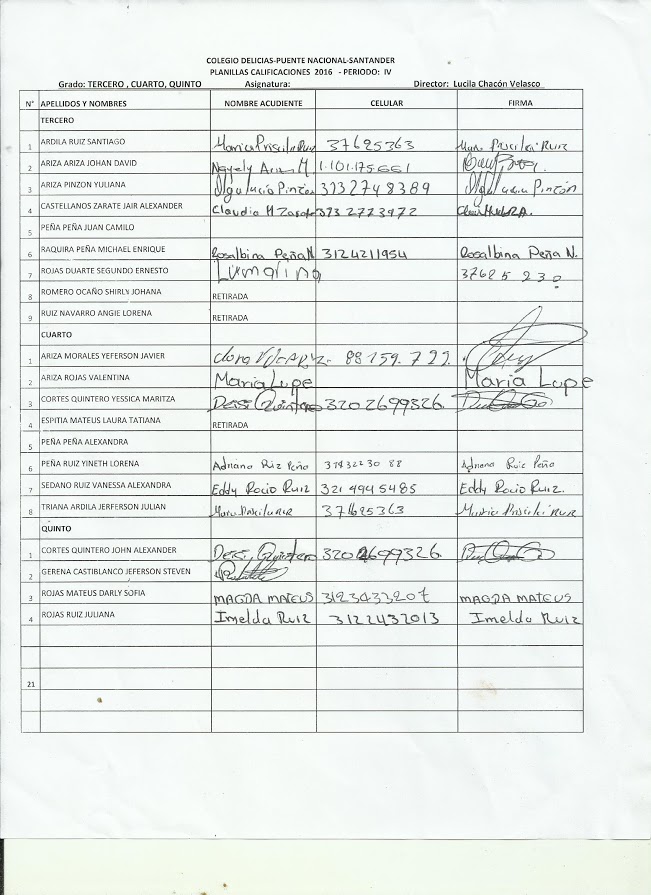 COLEGIO DELICIAS-PUENTE NACIONAL-SANTANDER
PLANILLAS CALIFICACIONES 2016 - PERIODO: IV
Grado: TERCERO , CUARTO, QUINTO Asignatura: Director: Lucila Chacón Velasco
N° APELLIDOS Y NOMBRES NOMBRE ACUDIENTE CELULAR FIRMA
TERCERO
1 ARDILA RUIZ SANTIAGO 37625363 Ruiz
2 ARIZA ARIZA JOHAN DAVID Nayely Ariza M 1.101.175.661
3 ARIZA PINZON YULIANA Olga Lucia Pinzón 3132748389 Olga Lucia Pinzón
4 CASTELLANOS ZARATE JAIR ALEXANDER Claudia M Zarate 3732773972
5 PEÑA PEÑA JUAN CAMILO
6 RAQUIRA PEÑA MICHAEL ENRIQUE Rosalbina Peña N 3124211954 Rosalbina Peña N.
7 ROJAS DUARTE SEGUNDO ERNESTO 37685230
8 ROMERO OCAÑO SHIRLY JOHANA RETIRADA
9 RUIZ NAVARRO ANGIE LORENA RETIRADA
CUARTO
1 ARIZA MORALES YEFERSON JAVIER 88159.722
2 ARIZA ROJAS VALENTINA Maria Lupe Maria Lupe
3 CORTES QUINTERO YESSICA MARITZA Quintero 3202699326
4 ESPITIA MATEUS LAURA TATIANA RETIRADA
5 PEÑA PEÑA ALEXANDRA
6 PEÑA RUIZ YINETH LORENA Adriana Ruiz Peña 88 Adriana Ruiz Peña
7 SEDANO RUIZ VANESSA ALEXANDRA Eddy Rocio Ruiz 321 4945485 Eddy Rocio Ruiz.
8 TRIANA ARDILA JERFERSON JULIAN 37625363
QUINTO
1 CORTES QUINTERO JOHN ALEXANDER Quintero 3202699326.
2 GERENA CASTIBLANCO JEFERSON STEVEN
3 ROJAS MATEUS DARLY SOFIA MAGDA MATEUS 3123433207 MAGDA MATEUS
4 ROJAS RUIZ JULIANA Imelda Ruiz 3122432013 Imelda Ruiz
21